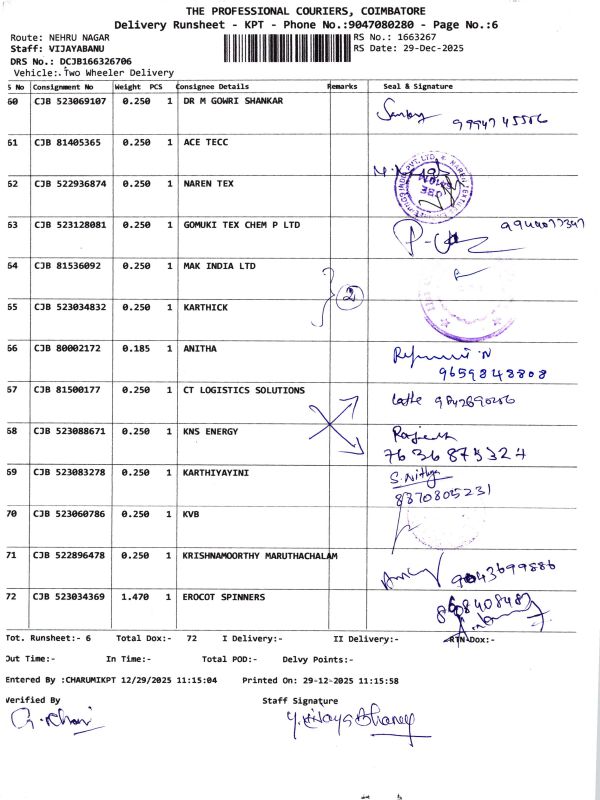 THE PROFESSIONAL COURIERS, COIMBATORE
Delivery Runsheet - KPT - Phone No.:9047080280 - Page No.:6
Route: NEHRU NAGAR RS No.: 1663267
Staff: VIJAYABANU RS Date: 29-Dec-2025
DRS No.: DCJB166326706
Vehicle:.Two Wheeler Delivery
S No Consignment No Weight PCS Consignee Details Remarks Seal & Signature
60 CJB 523069107 0.250 1 DR M GOWRI SHANKAR
61 CJB 81405365 0.250 1 ACE TECC
62 CJB 522936874 0.250 1 NAREN TEX
63 CJB 523128081 0.250 1 GOMUKI TEX CHEM P LTD
64 CJB 81536092 0.250 1 MAK INDIA LTD
2
65 CJB 523034832 0.250 1 KARTHICK
66 CJB 80002172 0.185 1 ANITHA
9659848808
67 CJB 81500177 0.250 1 CT LOGISTICS SOLUTIONS
68 CJB 523088671 0.250 1 KNS ENERGY Rajesh
7636875324
69 CJB 523083278 0.250 1 KARTHIYAYINI S.Nithya
8870805231
70 CJB 523060786 0.250 1 KVB
71 CJB 522896478 0.250 1 KRISHNAMOORTHY MARUTHACHALAM
9043699886
72 CJB 523034369 1.470 1 EROCOT SPINNERS
Tot. Runsheet:- 6 Total Dox:- 72 I Delivery:- II Delivery:- RTN Dox:-
Out Time:- In Time:- Total POD:- Delvy Points:-
Entered By :CHARUMIKPT 12/29/2025 11:15:04 Printed On: 29-12-2025 11:15:58
Verified By Staff Signature